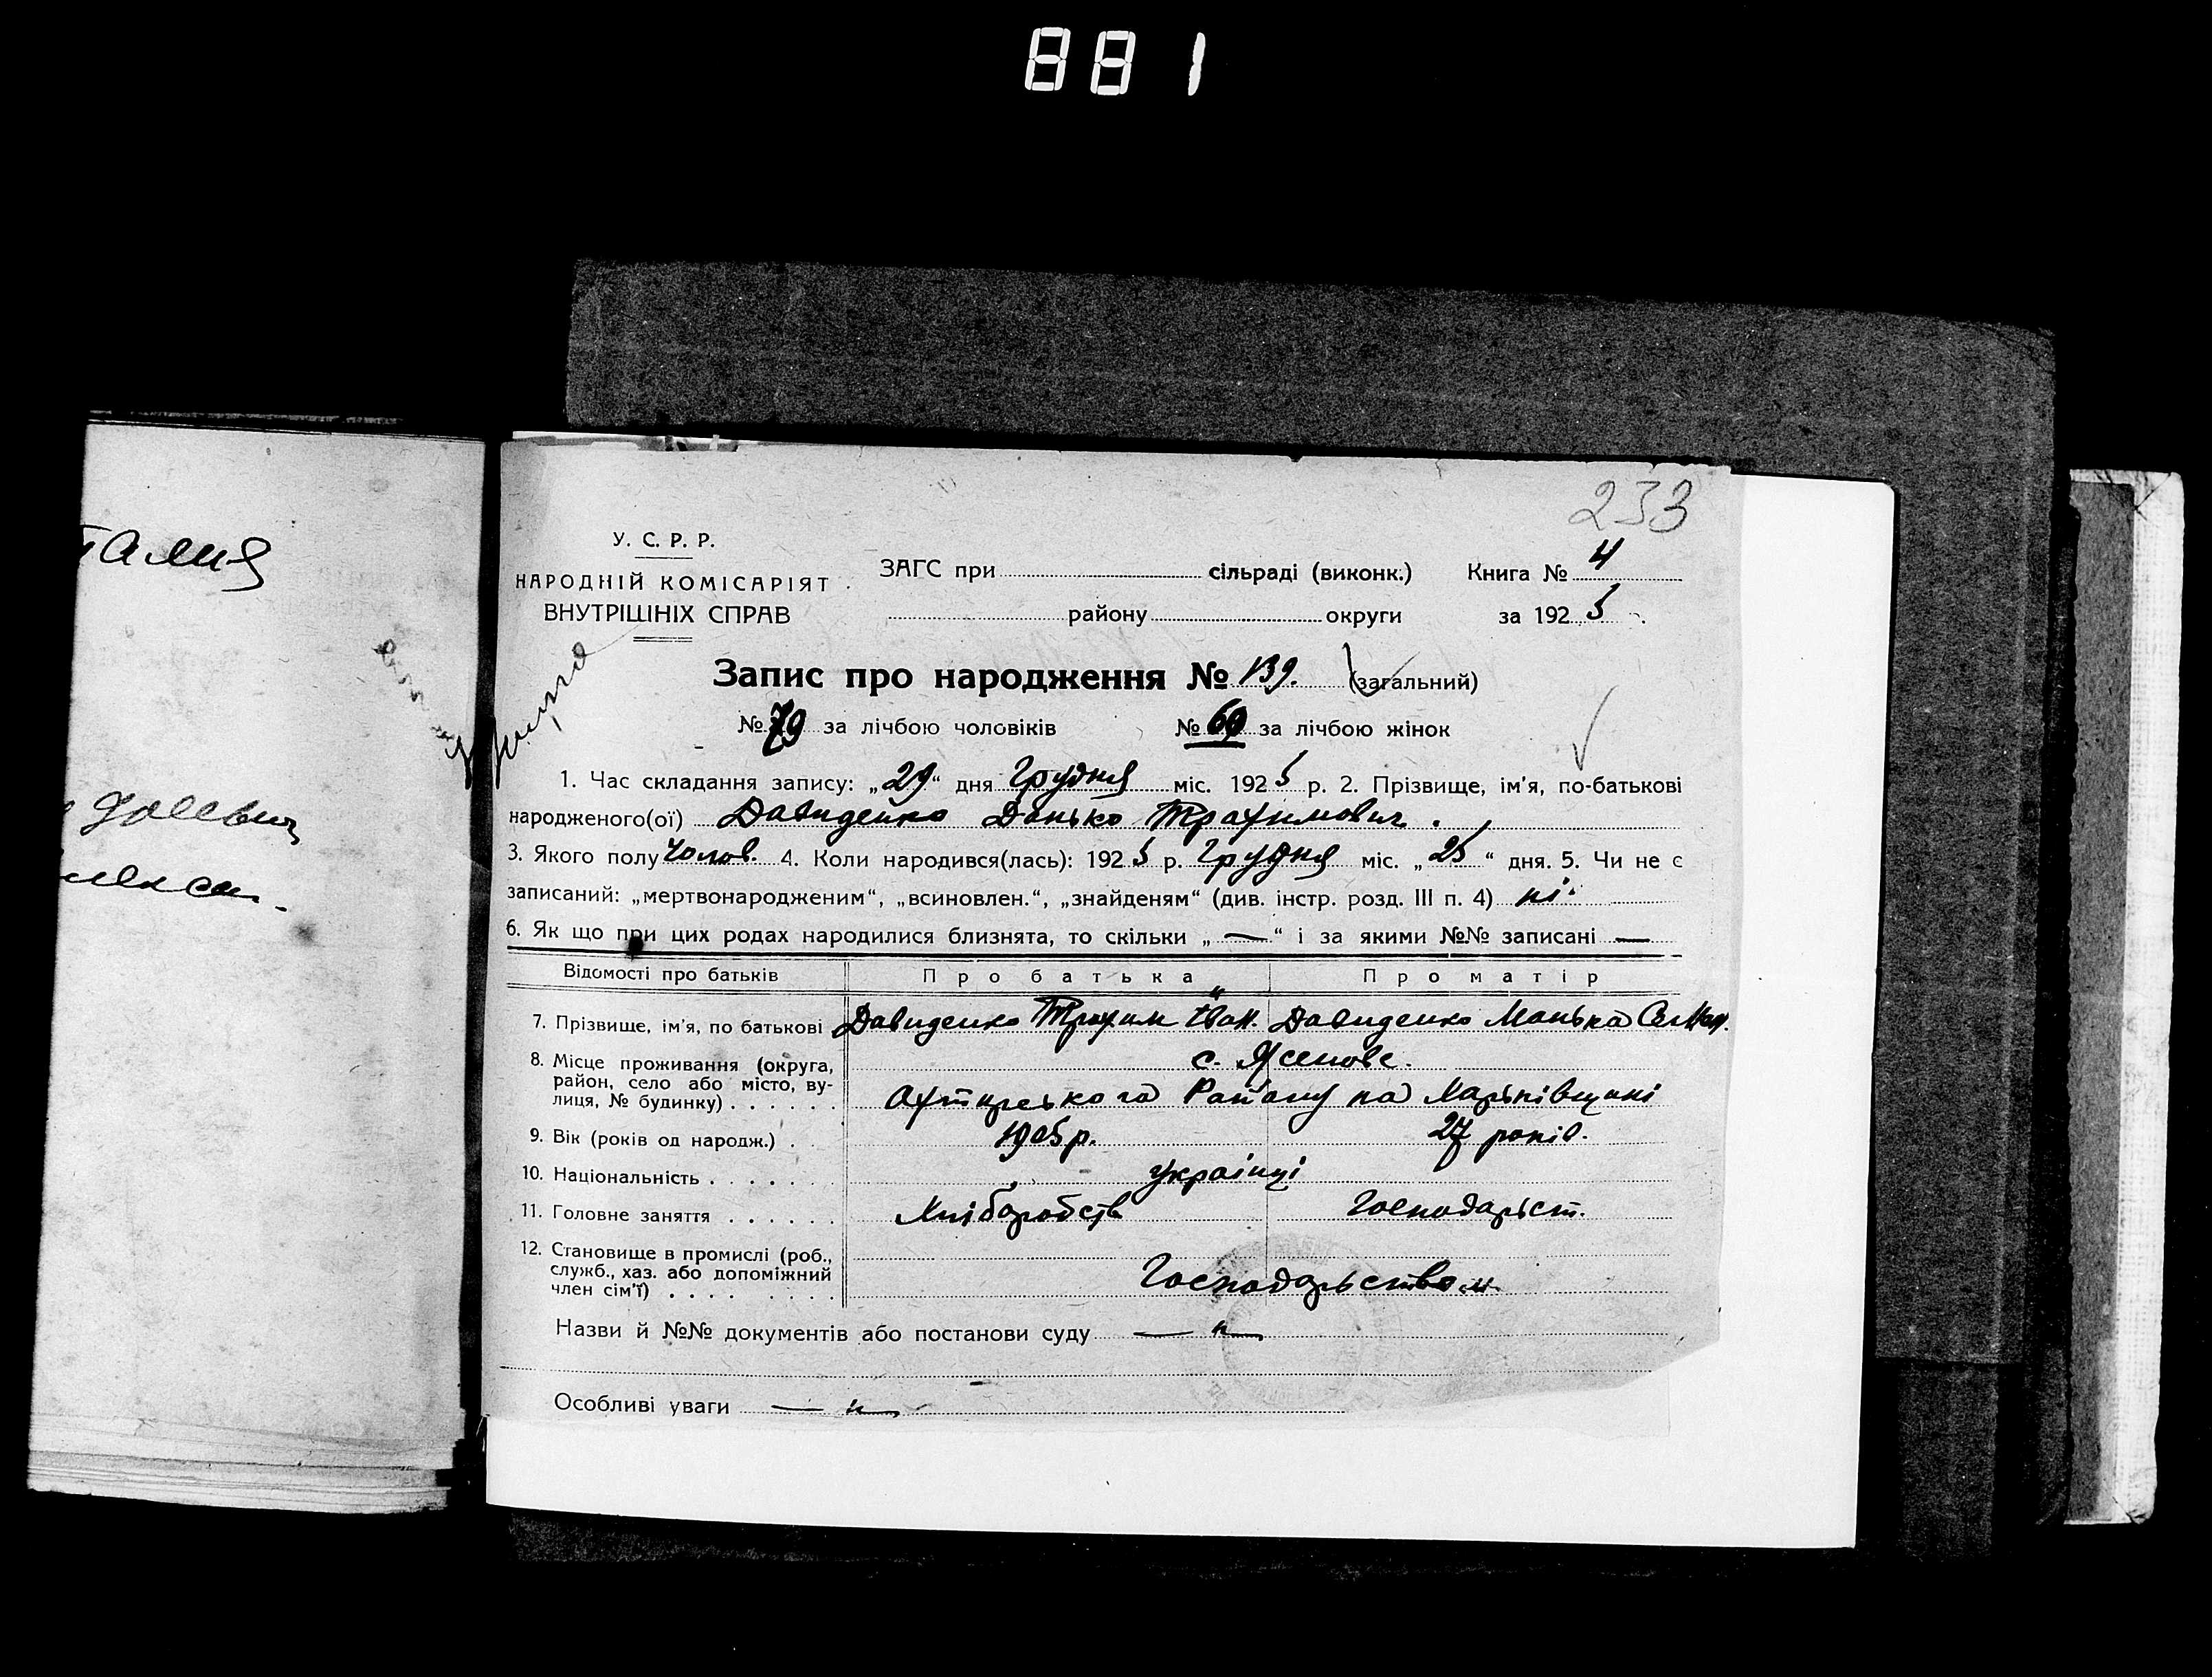 881
233
У. С. Р. Р.
НАРОДНІЙ КОМІСАРІЯТ
ВНУТРІШНІХ СПРАВ
ЗАГС при сільраді (виконк.) Книга № 4
району округи за 1925
Запис про народження № 139. (загальний)
№ 79 за лічбою чоловіків № 60 за лічбою жінок
1. Час складання запису: „29“ дня Грудня міс. 1925 р. 2. Прізвище, ім'я, по-батькові
народженого(ої) Давиденко Данько Трахимович.
3. Якого полу Чолов. 4. Коли народився(лась): 1925 р. Грудня міс. „25“ дня. 5. Чи не є
записаний: „мертвонародженим“, „всиновлен.“, „знайденям“ (див. інстр. розд. III п. 4) ні.
6. Як що при цих родах народилися близнята, то скільки „—“ і за якими №№ записані —
Відомості про батьків Про батька Про матір
7. Прізвище, ім'я, по батькові Давиденко Трохим Іван. Давиденко Манька
8. Місце проживання (округа, район, село або місто, вулиця, № будинку) с. Ясенове
Охтирського Району на Харьківщині
9. Вік (років од народж.) 1905 р. 27 років.
10. Національність українці
11. Головне заняття Хліборобств Господарьст.
12. Становище в промислі (роб., служб., хаз. або допоміжний член сім'ї) Господарьством
Назви й №№ документів або постанови суду — „ —
Особливі уваги — „ —
талия